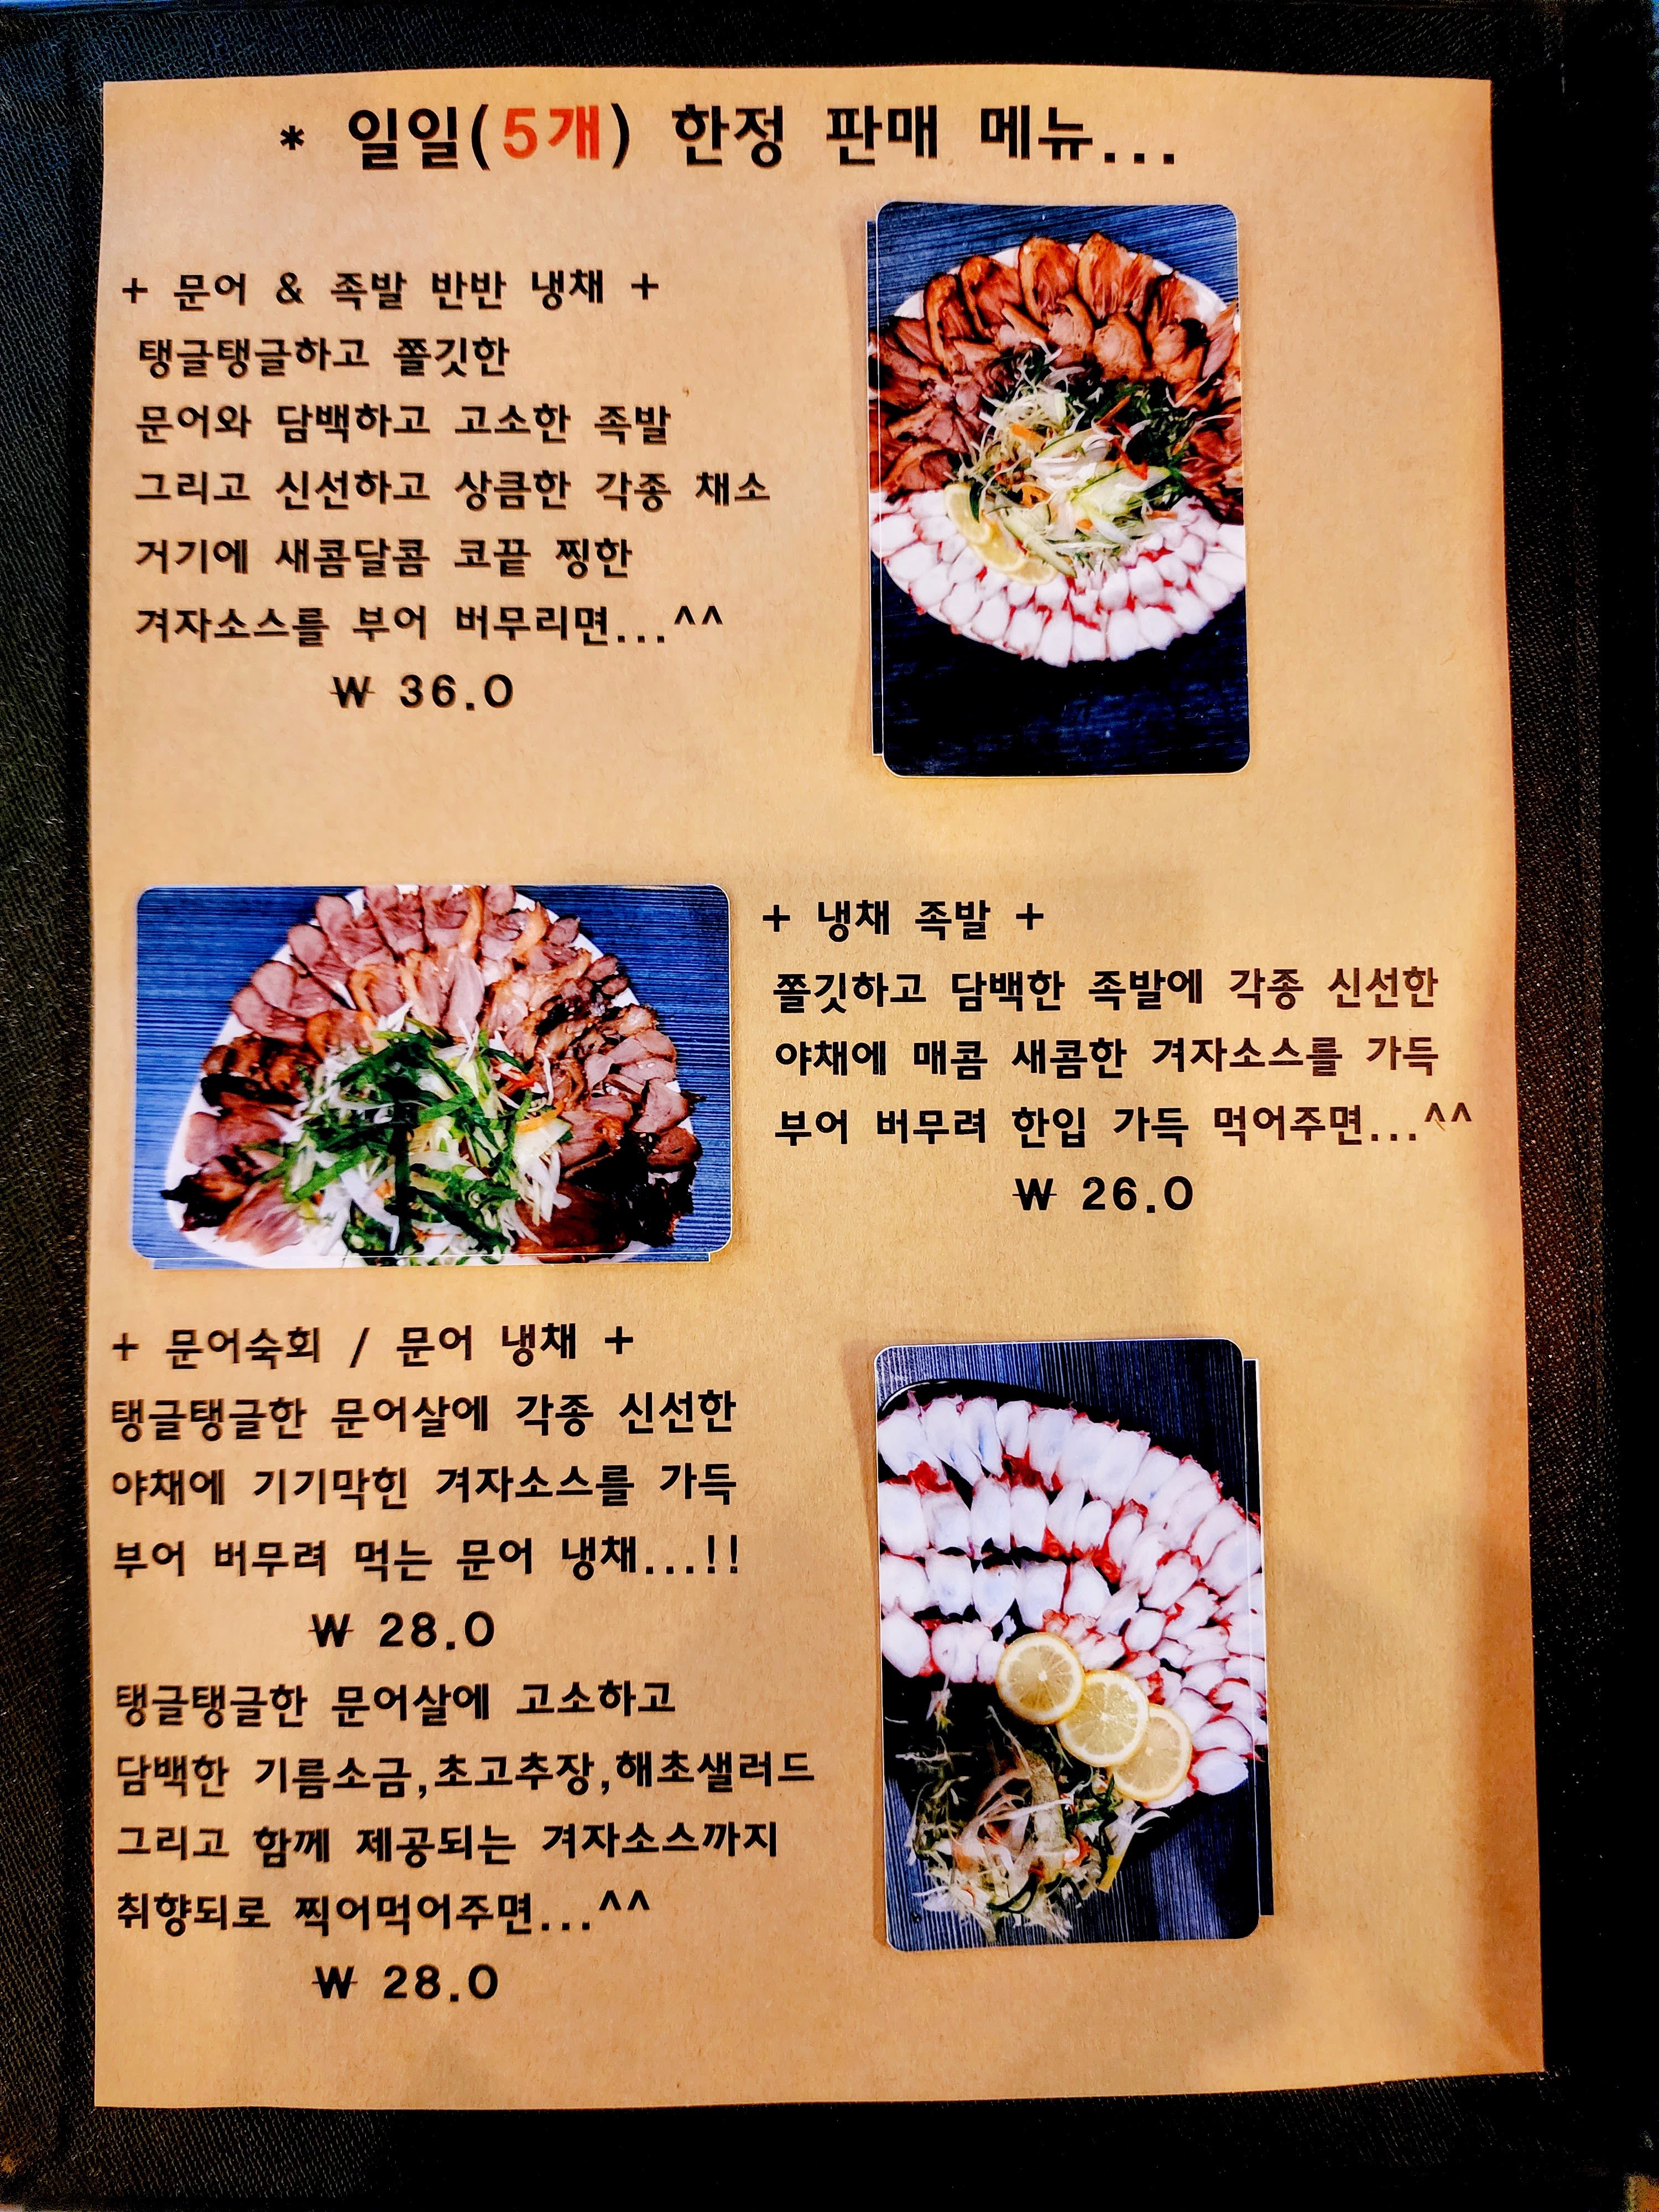 * 일일(5개) 한정 판매 메뉴...
+ 문어 & 족발 반반 냉채 +
탱글탱글하고 쫄깃한
문어와 담백하고 고소한 족발
그리고 신선하고 상큼한 각종 채소
거기에 새콤달콤 코끝 찡한
겨자소스를 부어 버무리면...^^
₩ 36.0
+ 냉채 족발 +
쫄깃하고 담백한 족발에 각종 신선한
야채에 매콤 새콤한 겨자소스를 가득
부어 버무려 한입 가득 먹어주면...^^
₩ 26.0
+ 문어숙회 / 문어 냉채 +
탱글탱글한 문어살에 각종 신선한
야채에 기기막힌 겨자소스를 가득
부어 버무려 먹는 문어 냉채...!!
₩ 28.0
탱글탱글한 문어살에 고소하고
담백한 기름소금,초고추장,해초샐러드
그리고 함께 제공되는 겨자소스까지
취향되로 찍어먹어주면...^^
₩ 28.0